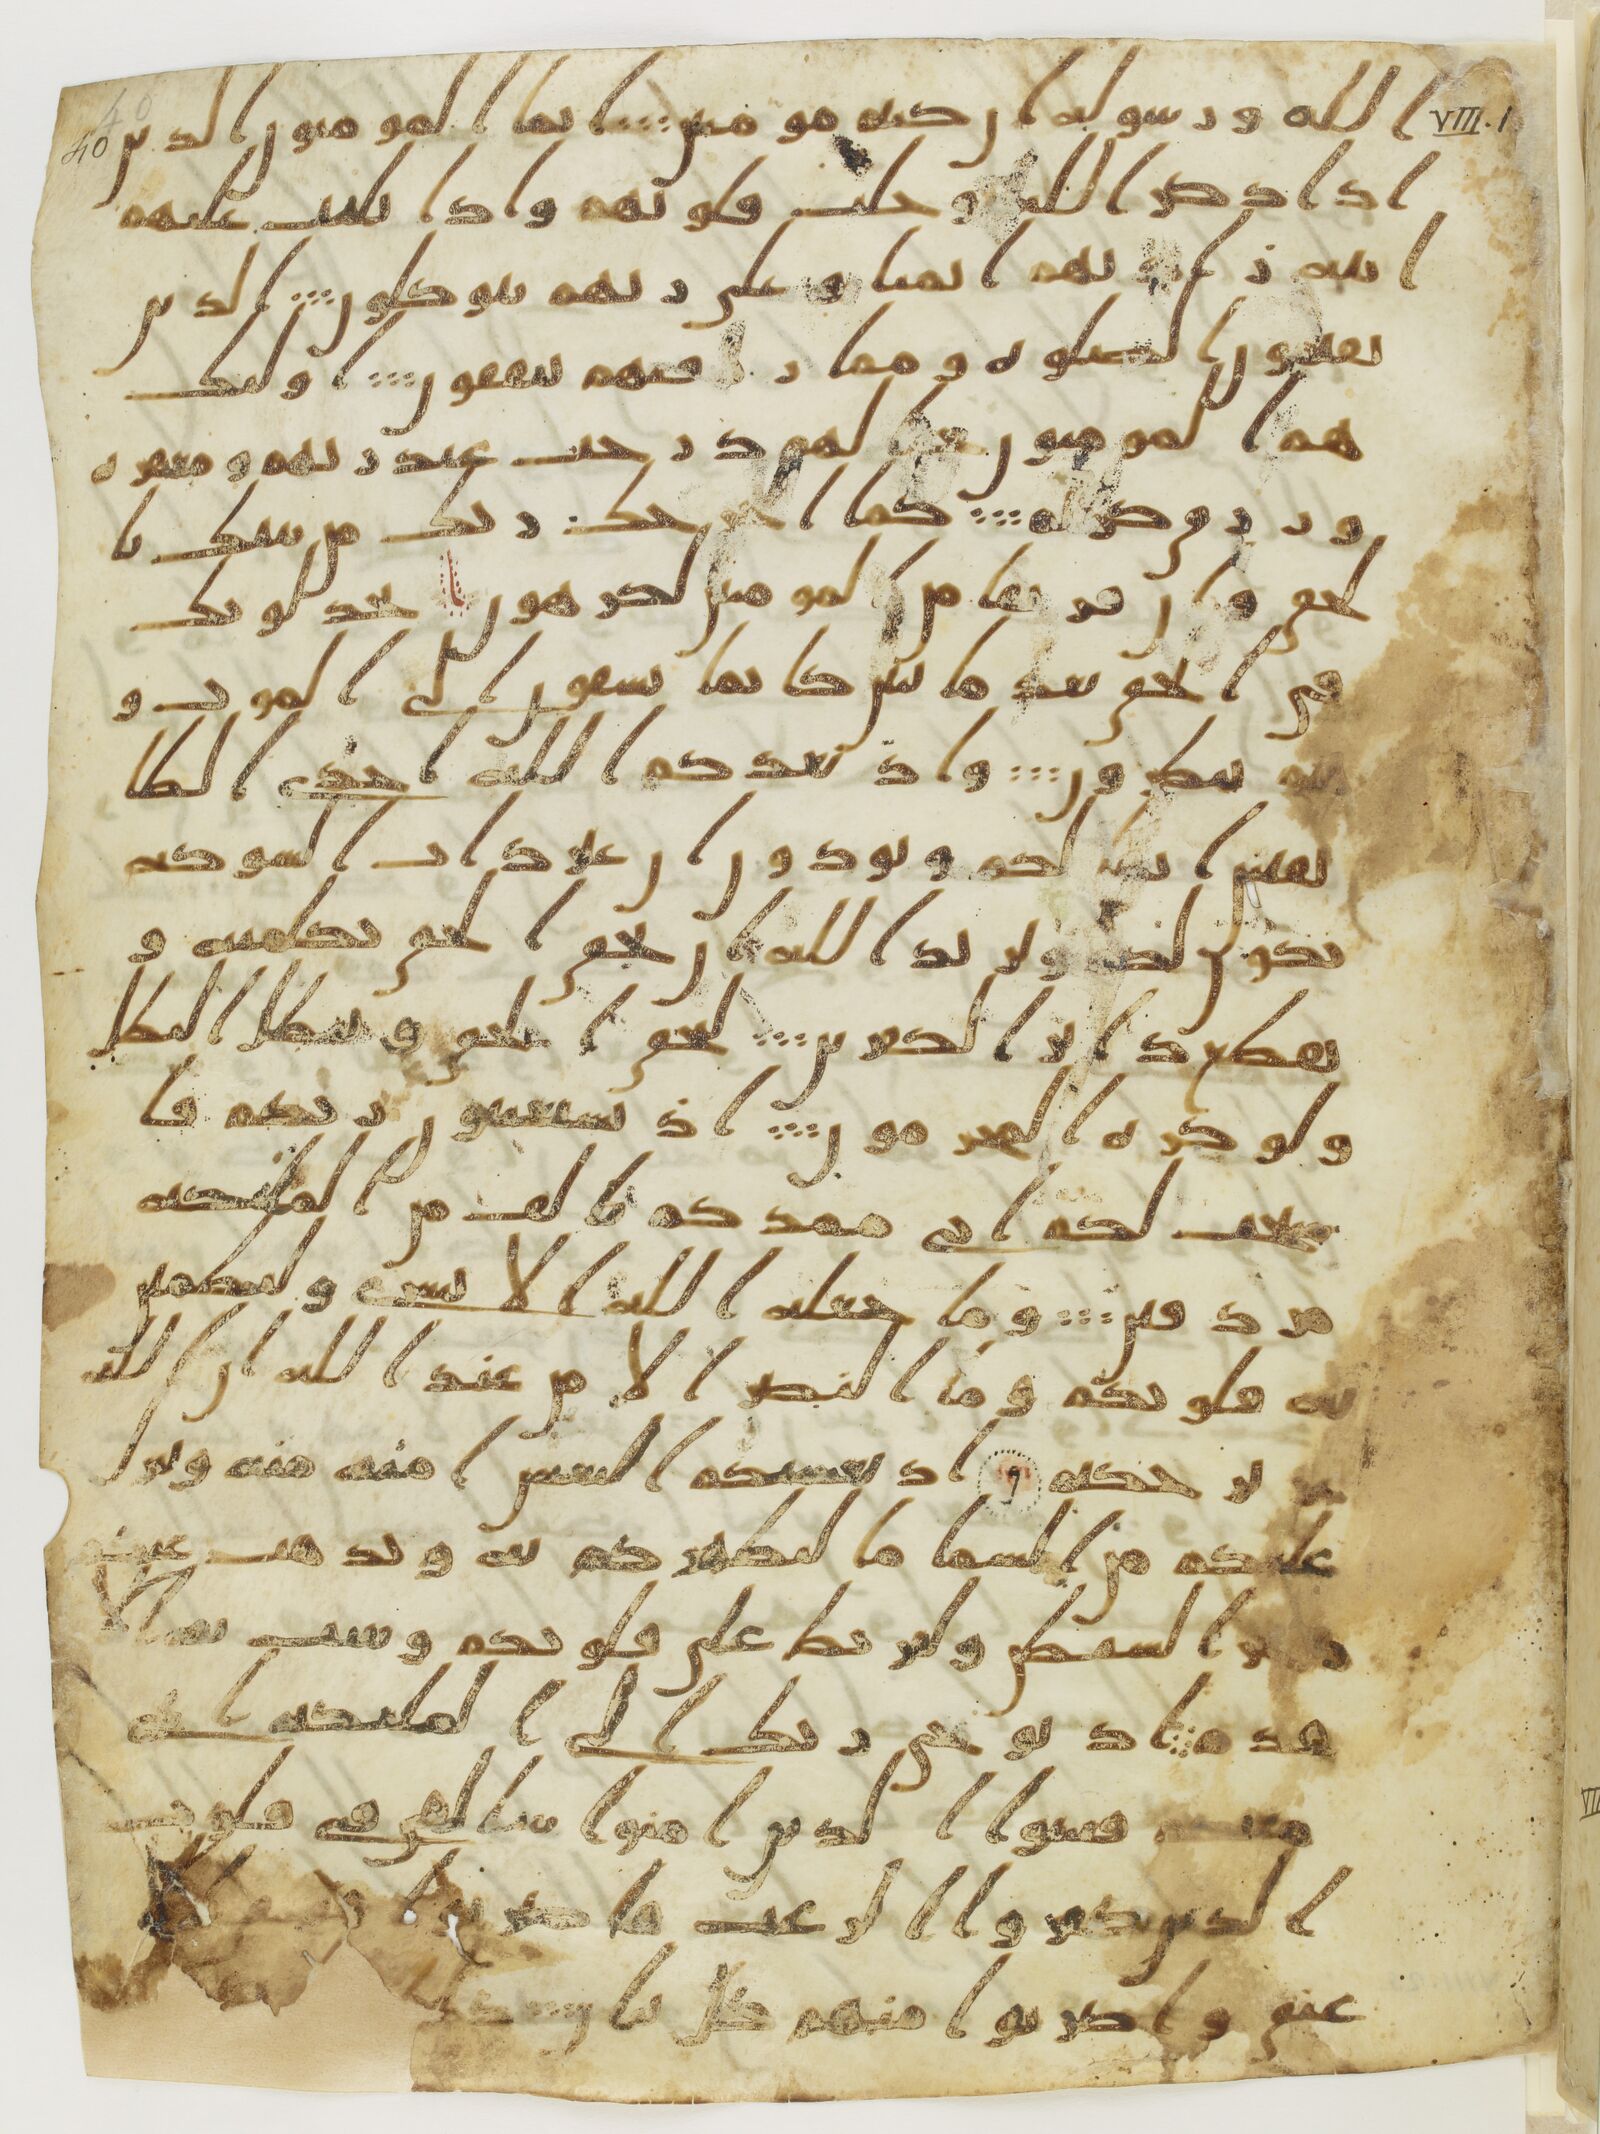 VIII.1
40
40
الله ورسوله ان كنتم مومنين ۝ انما المومنون الذين
اذا ذكر الله وجلت قلوبهم واذا تليت عليهم
ايته زادتهم ايمنا وعلى ربهم يتوكلون ۝ الذين
يقيمون الصلوه ومما رزقنهم ينفقون ۝ اوليك
هم المومنون حقا لهم درجت عند ربهم ومغفره
ورزق كريم ۝ كما اخرجك ربك من بيتك با
لحق وان فريقا من المومنين لكرهون يجدلونك
في الحق بعد ما تبين كانما يسقون الى الموت و
هم ينظرون ۝ واذ يعدكم الله احدى الطا
يفتين انها لكم وتودون ان غير ذات الشوكه
تكون لكم ويريد الله ان يحق الحق بكلمته و
يقطع دابر الكفرين ۝ ليحق الحق ويبطل البطل
ولو كره المجرمون ۝ اذ تستغيثون ربكم فا
ستجب لكم اني ممدكم بالف من المليكه
مردفين ۝ وما جعله الله الا بشرى ولتطمين
به قلوبكم وما النصر الا من عند الله ان الله
عزيز حكيم ۝ اذ يغشيكم النعس امنه منه وينزل
عليكم من السما ما ليطهركم به ويذهب عنكم
رجز الشيطن وليربط على قلوبكم ويثبت به الا
قدم ۝ اذ يوحي ربك الى المليكه اني
معكم فثبتوا الذين امنوا سالقي في قلوب
الذين كفروا الرعب فاضربوا
عنق واضربوا منهم كل بنان